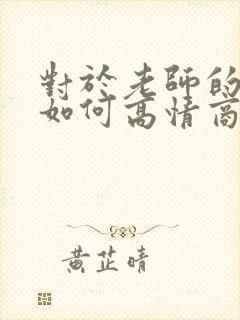 對於老師的
如何高情商
黃芷晴